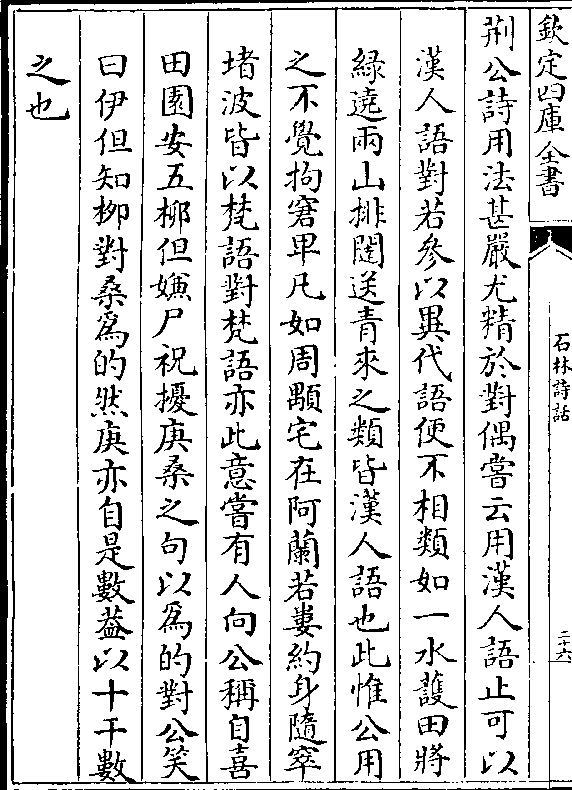 欽定四庫全書
石林詩話
二十六
荆公詩用法甚嚴尤精於對偶嘗云用漢人語止可以
漢人語對若參以異代語便不相類如一水護田將
緑遶兩山排闥送青來之類皆漢人語也此惟公用
之不覺拘窘卑凡如周顒宅在阿蘭若婁約身隨窣
堵波皆以梵語對梵語亦此意嘗有人向公稱自喜
田園安五柳但嫌尸祝擾庚桑之句以為的對公笑
曰伊但知柳對桑為的然庚亦自是數葢以十干數
之也